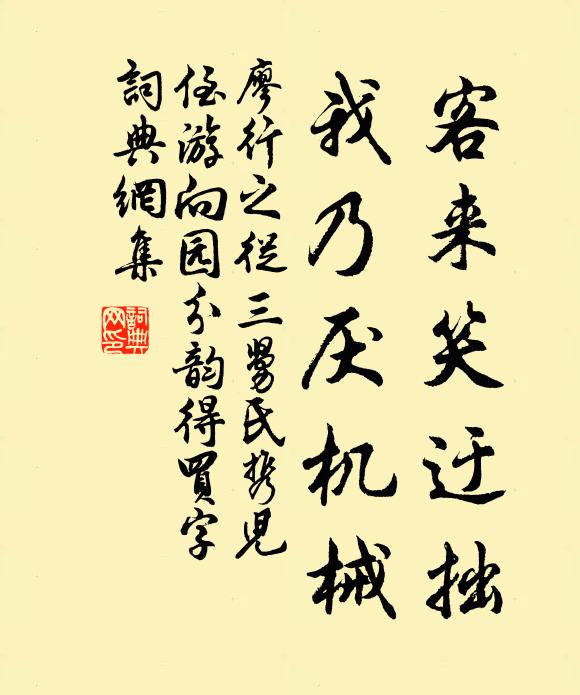 客来笑迂拙
我乃厌机械
廖行之從三舅氏携児
侄游向园分韵得買字
詞典網集
詞典网印